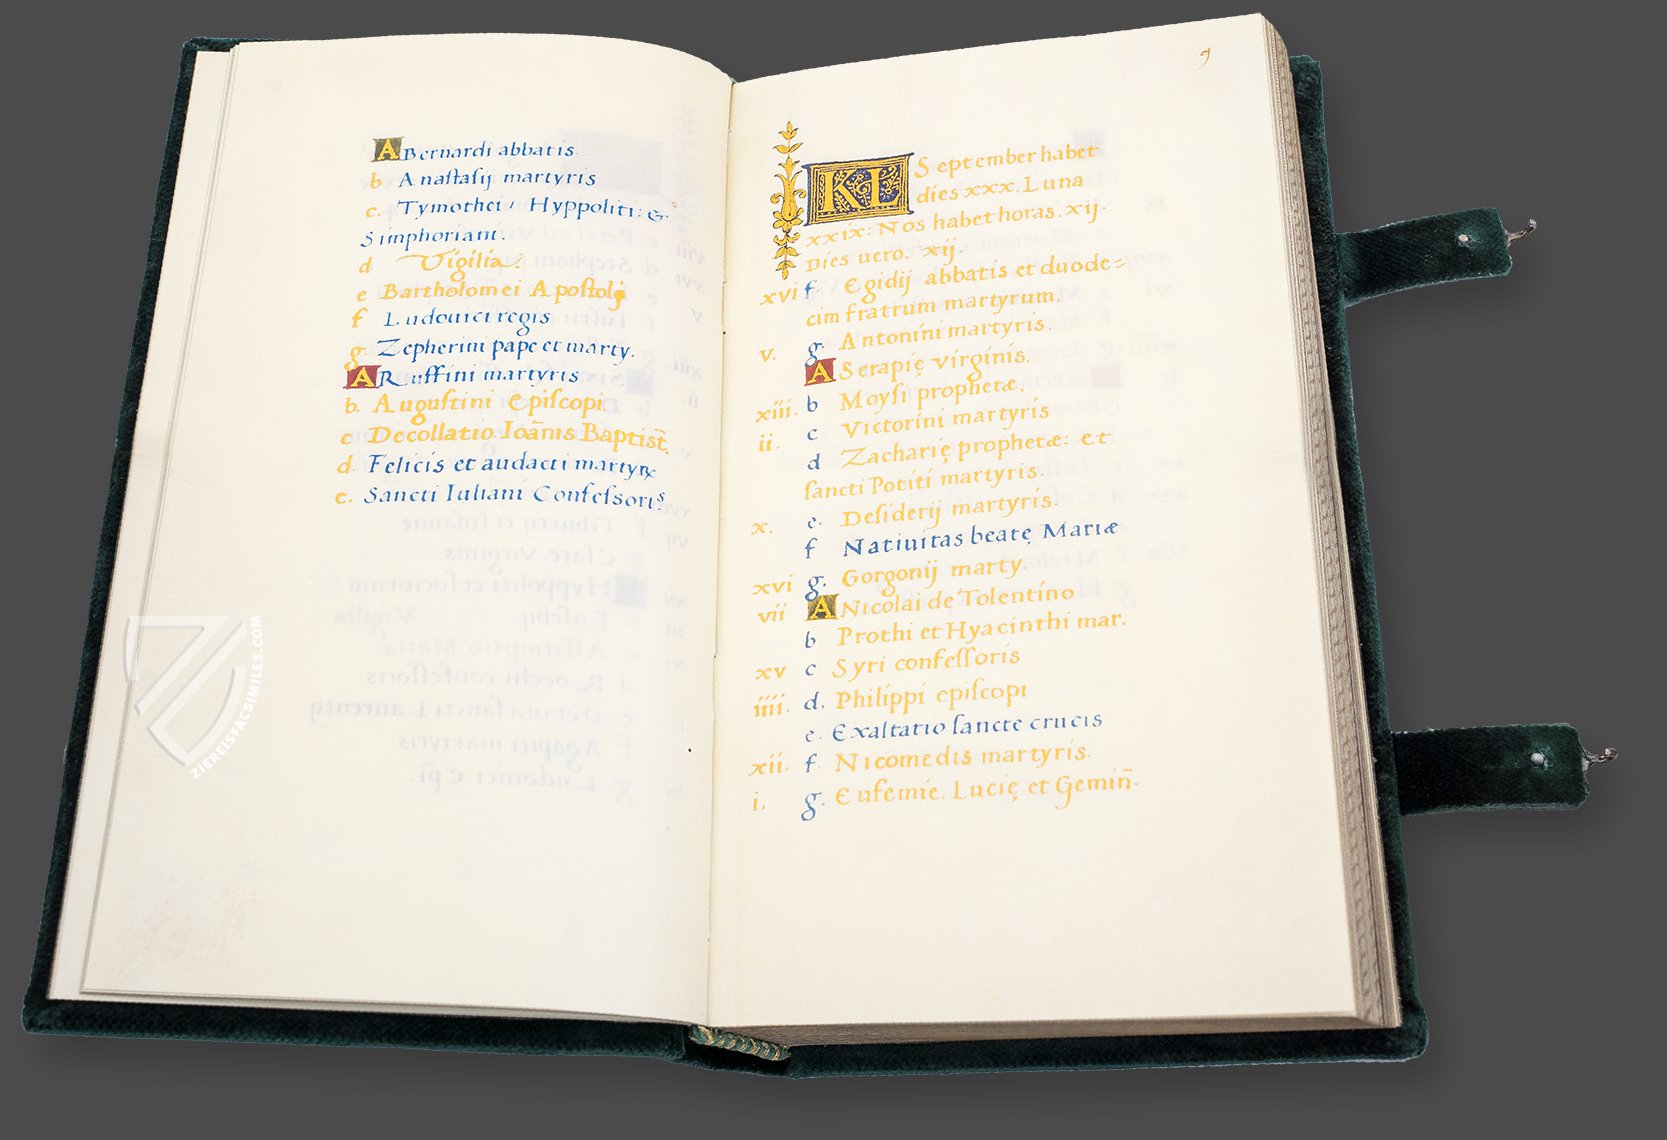 A Bernardi abbatis.
b Anastasij martyris
c. Tymothei, Hyppoliti: &
Simphoriani.
d Vigilia.
e Bartholomei Apostoli
f Ludouici regis
g. Zepherini pape et marty.
A Ruffini martyris
b. Augustini Episcopi
c Decollatio Ioānis Baptistē.
d. Felicis et audacti martyrꝝ
e. Sancti Iuliani Confessoris.
9
KL September habet
dies xxx. Luna
xxix: Nos habet horas. xij.
Dies uero. xij.
xvi f. Egidij abbatis et duode=
cim fratrum martyrum.
v. g. Antonini martyris.
A Serapię virginis.
xiii. b Moysi prophetæ.
ii. c Victorini martyris
d Zacharię prophetæ: et
sancti Potiti martyris.
x. e. Desiderij martyris.
f Natiuitas beatę Mariæ
xvi g. Gorgonij marty.
vii A Nicolai de Tolentino
b Prothi et Hyacinthi mar.
xv c Syri confessoris
iiii. d. Philippi episcopi
e. Exaltatio sancte crucis
xii. f Nicomedis martyris.
i. g. Eufemie. Lucię et Gemiñ.
ZIEREISFACSIMILES.COM